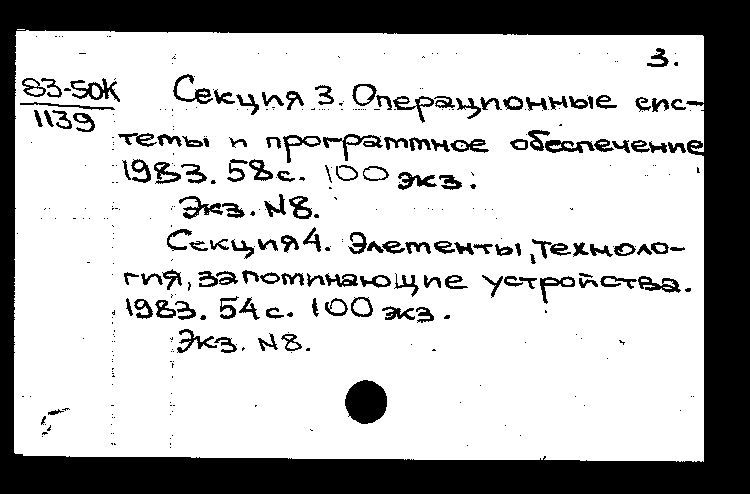 3.
83-50К
1139
Секция 3. Операционные сис-
темы и программное обеспечение
1983. 58 с. 100 экз.
Экз. N8.
Секция 4. Элементы, техноло-
гия, запоминающие устройства.
1983. 54 с. 100 экз.
Экз. N8.